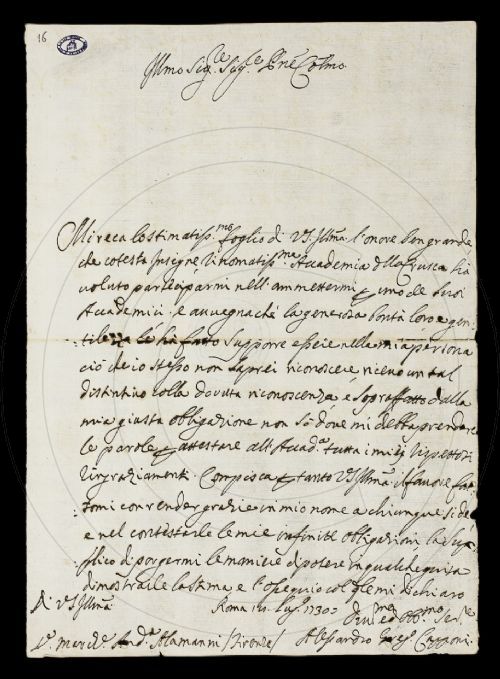 16
Illmo Sigre Sigre Pne Colmo
Mi reca lo stimatissmo foglio di VS. Illma l'onore ben grande
che cotesta Insigne Rinomatissma Accademia della Crusca ha
voluto participarmi nell'ammettermi p uno de suoi
Accademici: e avvegnachè la generosa bontà loro e gen-
tilezza le ha fatto supporre essere nella mia persona
ciò che io stesso non saprei riconoscere ricevo un tal
distintivo colla dovuta riconoscenza e sopraffatto dalla
mia giusta obbligazione non sò dove mi debba prendere
le parole p attestare all'Accada tutta i miei rispettosi
ringraziamenti. Compisca p tanto VS. Illma il favore
con render grazie in mio nome a chiunque si dè
e nel contestarle le mie infinite obbligazioni la sup-
plico di porgermi le maniere di potere in qualche guisa
dimostrarle la stima e l'ossequio col qle mi dichiaro
Di VS. Illma
Roma Lug. 1730
Devmo ed Obbmo Serre
Sr. March. Anda Alamanni /Firenze/ Alessandro Greg. Capponi